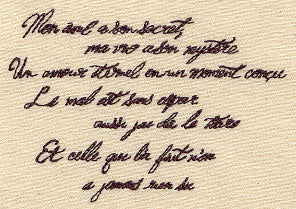 Mon ame a son secret,
ma vie a son mystère
Un amour éternel en un moment conçu
Le mal est sans espoir
aussi j'ai dû le taire
Et celle qui l'a fait n'en
a jamais rien su